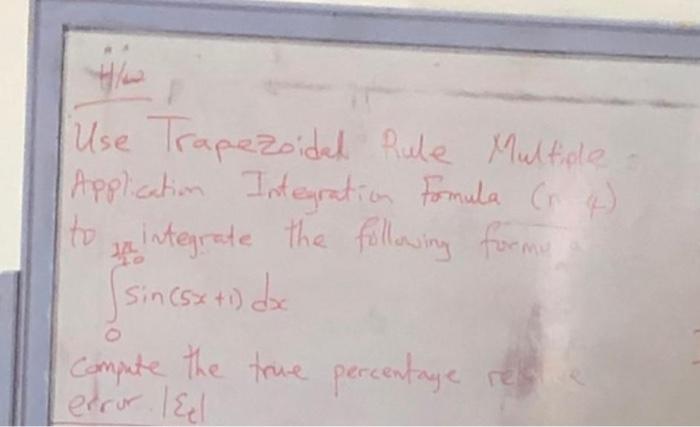 H/w
Use Trapezoidal Rule Multiple
Application Integration Formula (n 4)
to integrate the following
∫ sin(5x+1) dx
0
Compute the true percentage
error |εt|